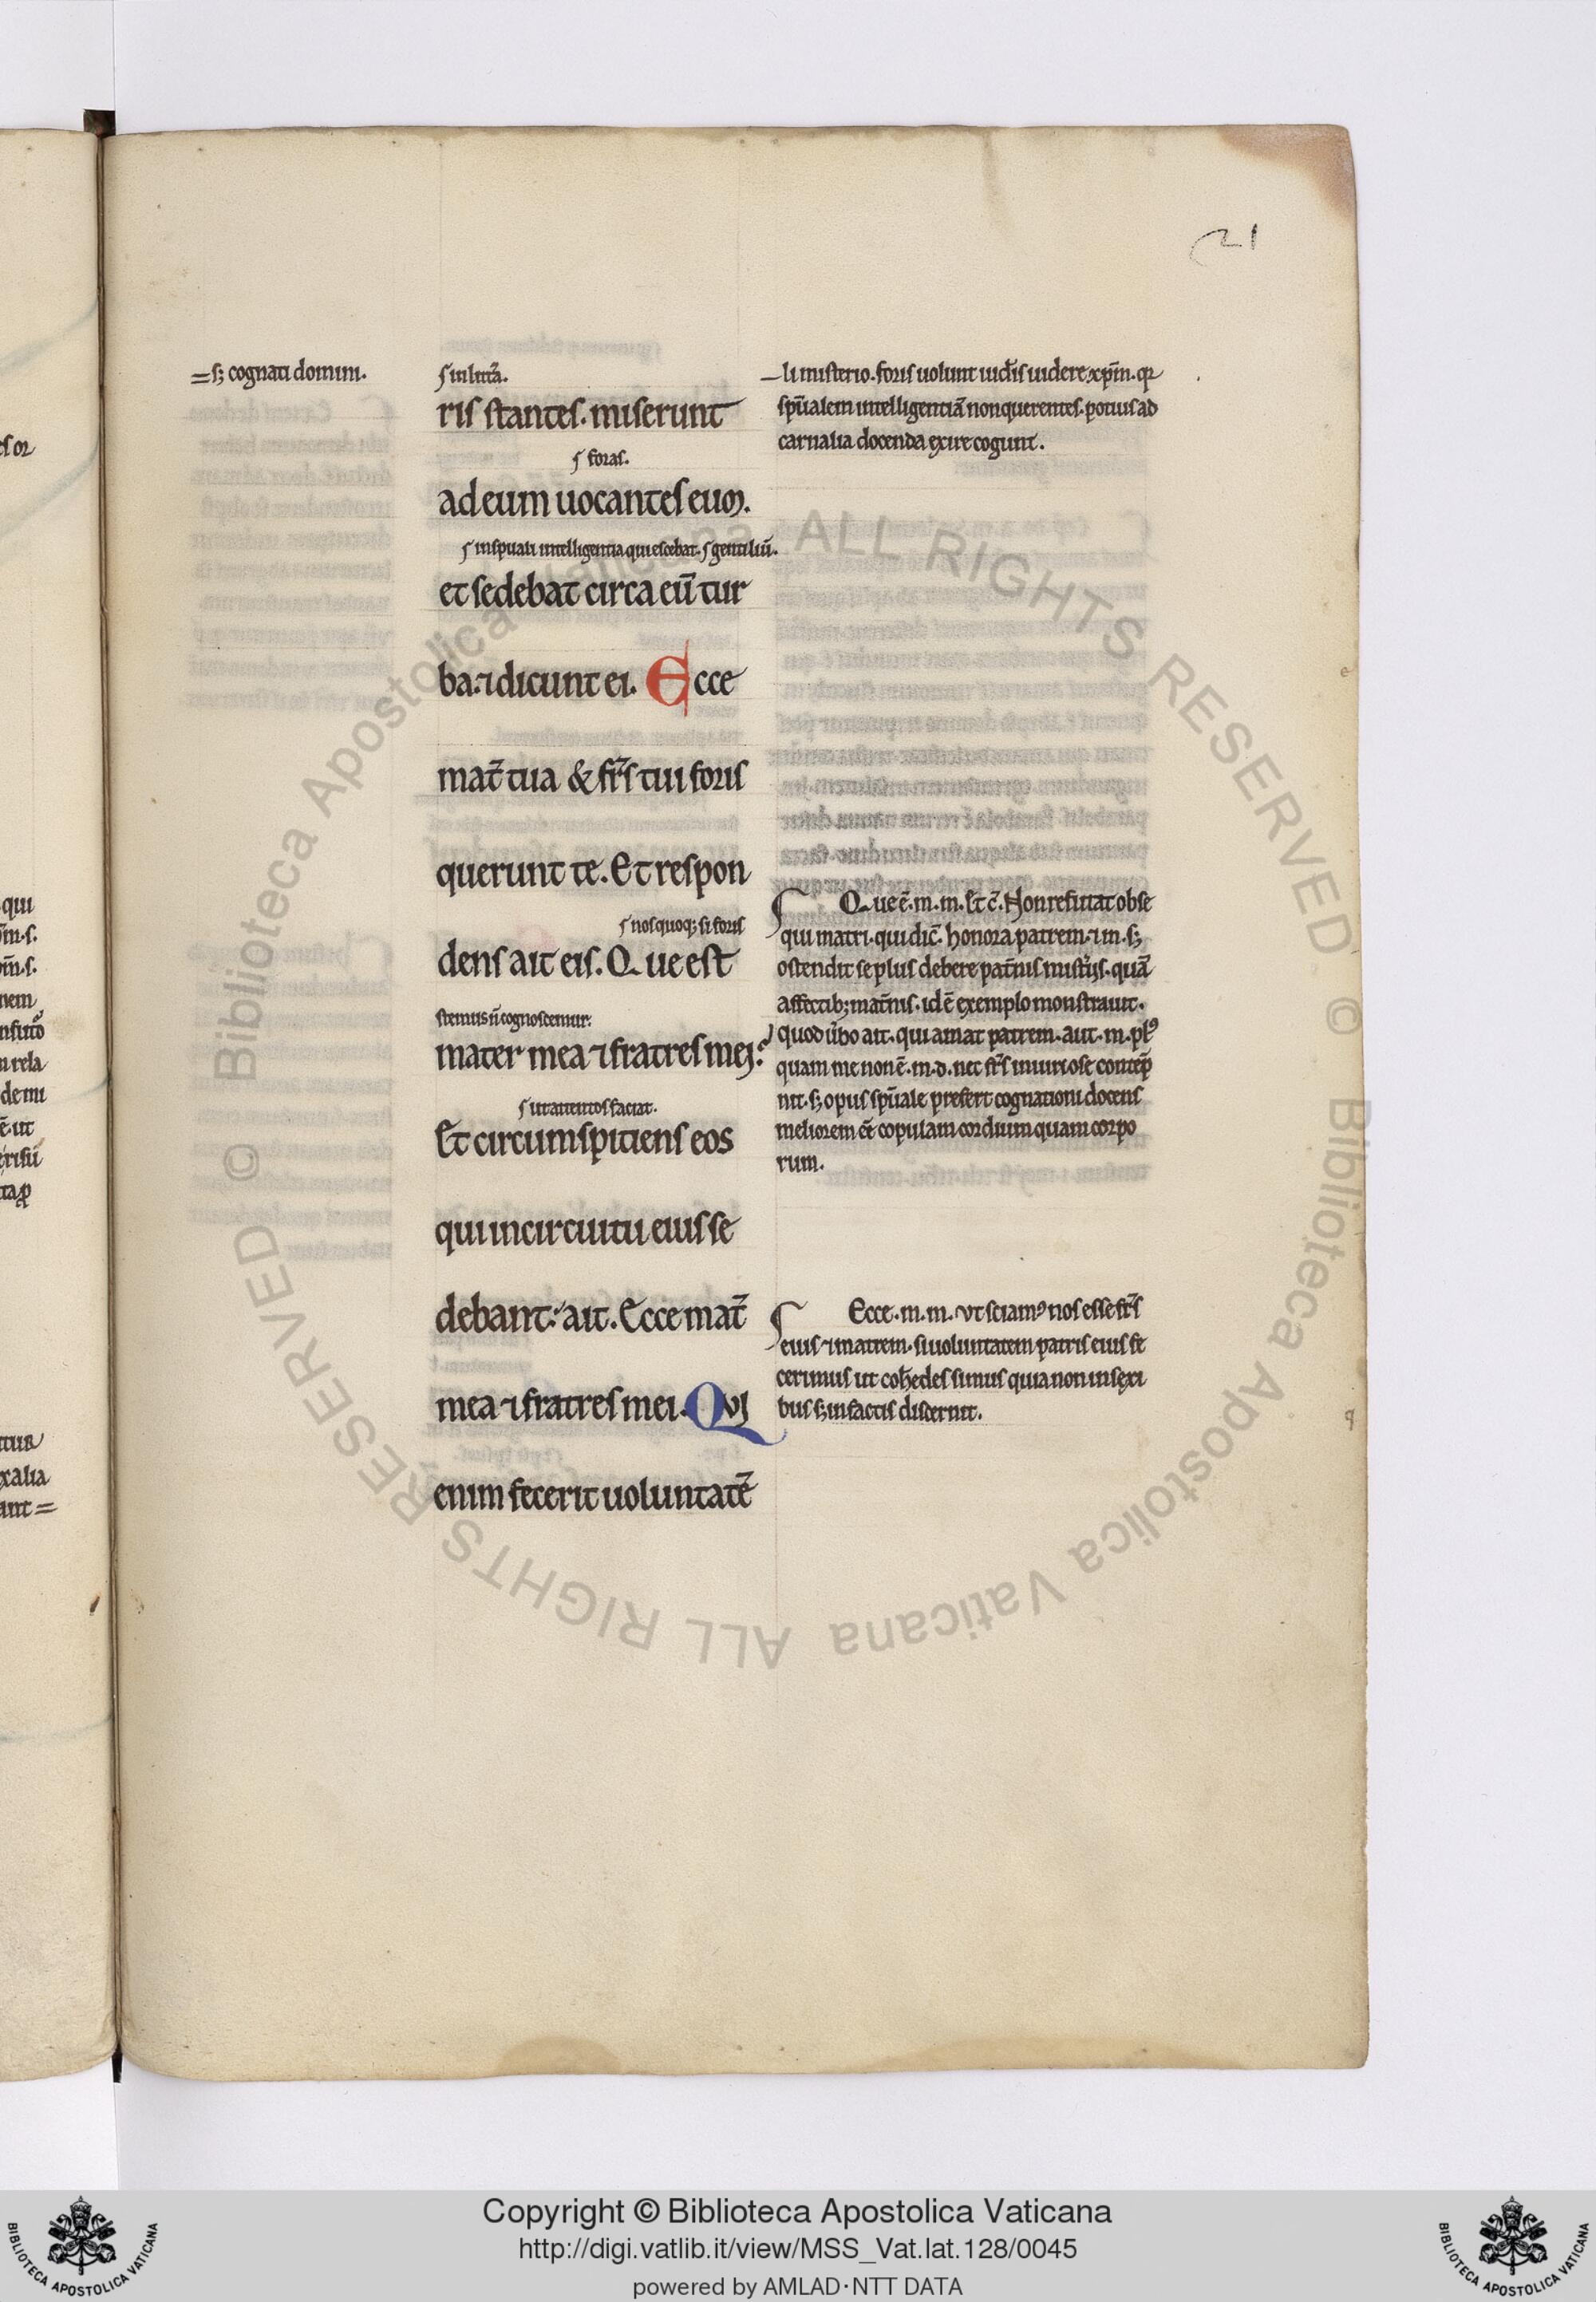 21
=ſꝫ cognati domini.
ſ in litt̃a.
ris stantes. miserunt
ſ foras.
ad eum uocantes eum.
ſ in sp̃uali intelligentia quiescebat. ſ gentiliũ.
et sedebat circa eũ tur
ba. ⁊ dicunt ei. Ecce
mat̃ tua & fr̃s tui foris
querunt te. Et respon
ſ nos quoqꝫ si foris
dens ait eis. Que est
stemus ñ cognoscemur.
mater mea ⁊ fratres mei?
ſ ut attentos faciat.
Et circumspiciens eos
qui in circuitu eius se
debant. ait. Ecce mat̃
mea ⁊ fratres mei. Qui
enim fecerit uoluntatẽ
—li misterio. foris uolunt iud̃is uidere xp̃m. qr
sp̃ualem intelligentiã non querentes. potius ad
carnalia docenda exire cogunt.
Que ẽ. m. m. Et c̃. Non refutat obse
qui matri. qui dic̃. honora patrem. ⁊ m. ſꝫ
ostendit se plus debere pat̃nis mist̃ijs. quã
affectibꝫ mat̃nis. id ẽ exemplo monstrauit.
quod ũbo ait. qui amat patrem. aut. m. plꝰ
quam me non ẽ. m. d. nec fr̃s iniuriose contẽp
nit. ſꝫ opus sp̃uale prefert cognationi docens
meliorem eẽ copulam cordium quam corpo
rum.
Ecce. m. m. vt sciamꝰ nos esse fr̃s
eius ⁊ matrem. si uoluntatem patris eius fe
cerimus ut coh̃edes simus quia non in sexi
bus ſꝫ in factis discernit.
es or
qui
rela
de mi
ẽ. ut
xalia
Copyright © Biblioteca Apostolica Vaticana
http://digi.vatlib.it/view/MSS_Vat.lat.128/0045
powered by AMLAD·NTT DATA
BIBLIOTECA APOSTOLICA VATICANA
BIBLIOTECA APOSTOLICA VATICANA
© Biblioteca Apostolica Vaticana ALL RIGHTS RESERVED
© Biblioteca Apostolica Vaticana ALL RIGHTS RESERVED